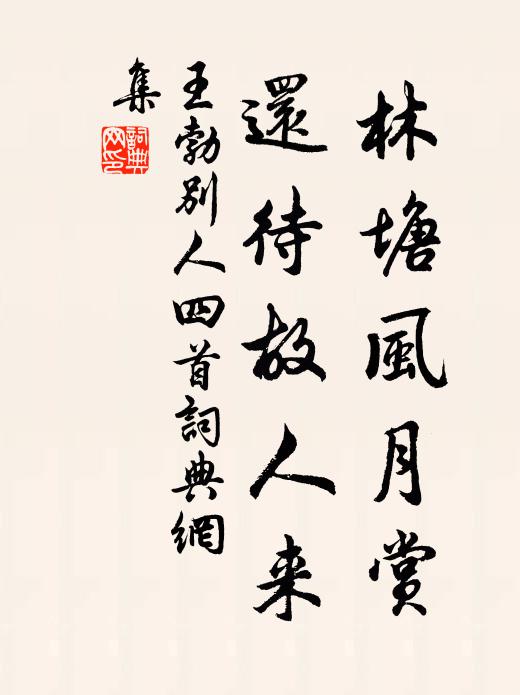 林塘風月賞
還待故人来
王勃別人四首詞典網
集
詞典網印